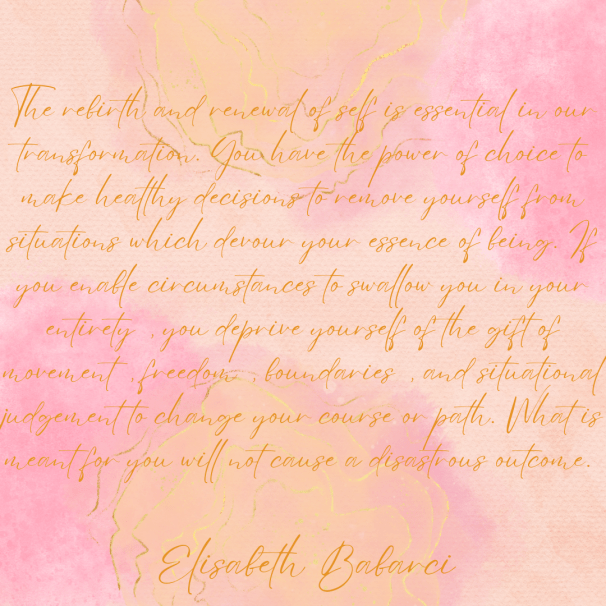 The rebirth and renewal of self is essential in our
transformation. You have the power of choice to
make healthy decisions to remove yourself from
situations which devour your essence of being. If
you enable circumstances to swallow you in your
entirety , you deprive yourself of the gift of
movement , freedom , boundaries , and situational
judgement to change your course or path. What is
meant for you will not cause a disastrous outcome.
Elisabeth Babarci